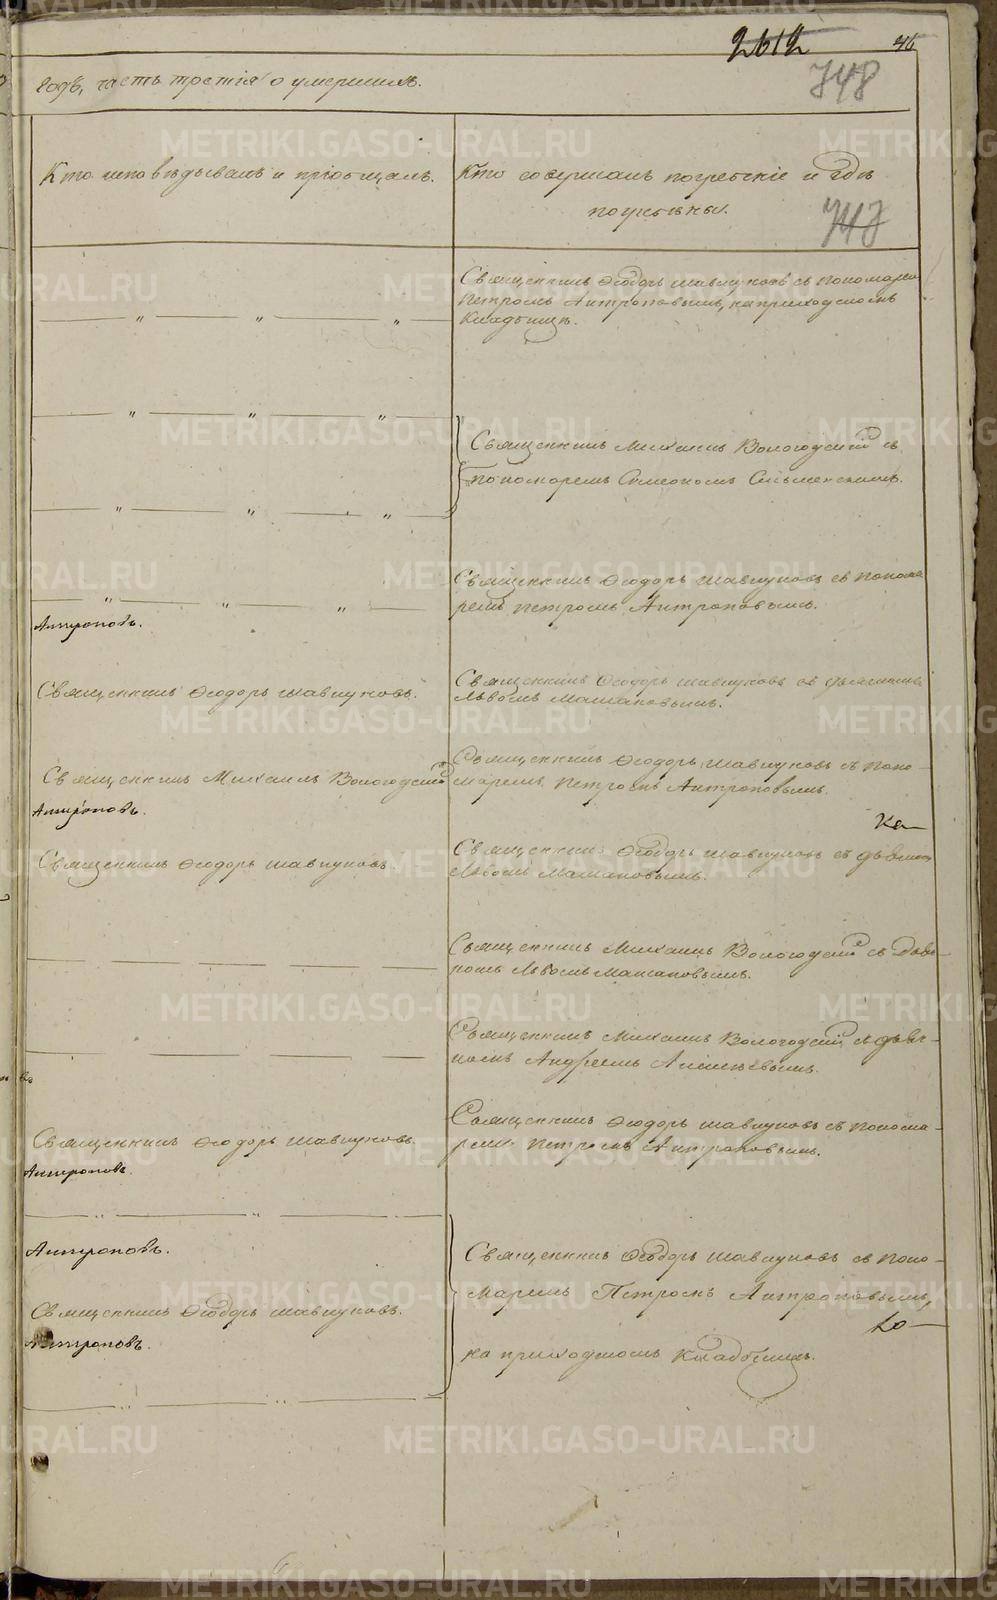 2612
46
748
годѣ, часть третія о умершихъ.
Кто исповѣдывалъ и пріобщалъ.
Кто совершалъ погребеніе и гдѣ
погребены.
747
Священникъ Ѳеодоръ Шавкуновъ съ пономаремъ
Петромъ Антроповымъ, на приходскомъ
Кладбищѣ.
Священникъ Михаилъ Вологодскій съ
пономаремъ Симеономъ
Священникъ Ѳеодоръ Шавкуновъ съ понома
ремъ Петромъ Антроповымъ.
Антроповъ.
Священникъ Ѳеодоръ Шавкуновъ.
Священникъ Ѳеодоръ Шавкуновъ съ дьячкомъ
Львомъ
Священникъ Михаилъ Вологодскій
Священникъ Ѳеодоръ Шавкуновъ съ поно-
маремъ Петромъ Антроповымъ.
Антроповъ.
Священникъ Ѳеодоръ Шавкуновъ
Священникъ Ѳеодоръ Шавкуновъ съ дьячком
Львомъ
Священникъ Михаилъ Вологодскій съ
Львомъ
Священникъ Михаилъ Вологодскій съ дьяч-
комъ Андреемъ
Священникъ Ѳеодоръ Шавкуновъ
Священникъ Ѳеодоръ Шавкуновъ съ понома-
ремъ Петромъ Антроповымъ.
Антроповъ.
Антроповъ.
Священникъ Ѳеодоръ Шавкуновъ съ поно-
маремъ Петромъ Антроповымъ,
Священникъ Ѳеодоръ Шавкуновъ.
Антроповъ.
на приходскомъ Кладбищѣ.
METRIKI.GASO-URAL.RU